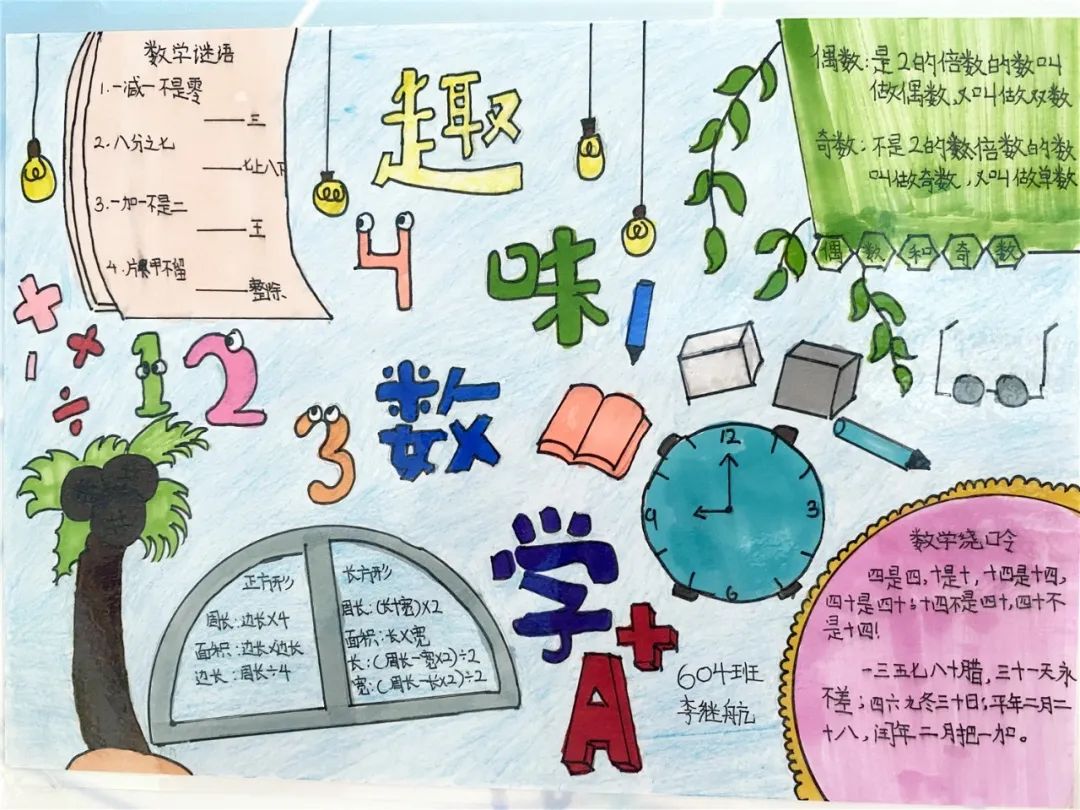 数学谜语
1.一减一不是零
——三
2.八分之七
——七上八下
3.一加一不是二
——王
4.片甲不留
——整除
趣
味
数
学
4
1
2
3
偶数:是2的倍数的数叫
做偶数,又叫做双数
奇数:不是2的数倍数的数
叫做奇数,又叫做单数
偶数和奇数
12
9
3
6
正方形
周长:边长×4
面积:边长×边长
边长:周长÷4
长方形
周长:(长+宽)×2
面积:长×宽
长:(周长-宽×2)÷2
宽:(周长-长×2)÷2
A+
604班
李继航
数学绕口令
四是四,十是十,十四是十四,
四十是四十;十四不是四十,四十不
是十四!
一三五七八十腊,三十一天永
不差;四六九冬三十日;平年二月二
十八,闰年二月把一加。